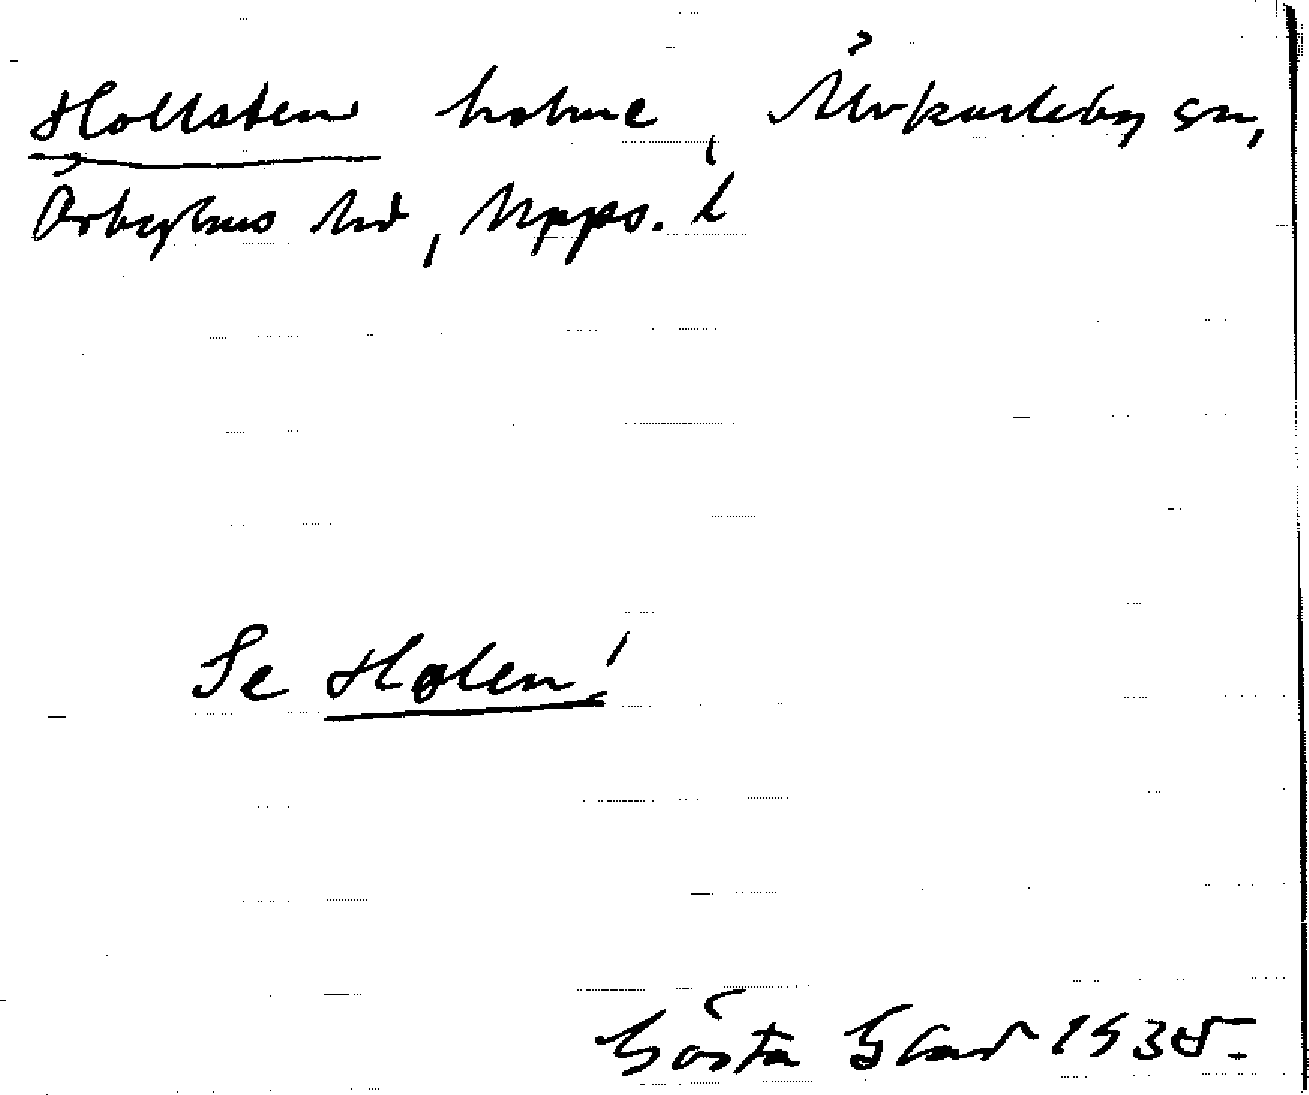 Hollsten holme, Älvkarleby sn,
Örbyhus hd, Upps. l
Se Holen!
Gösta Blad 1935.